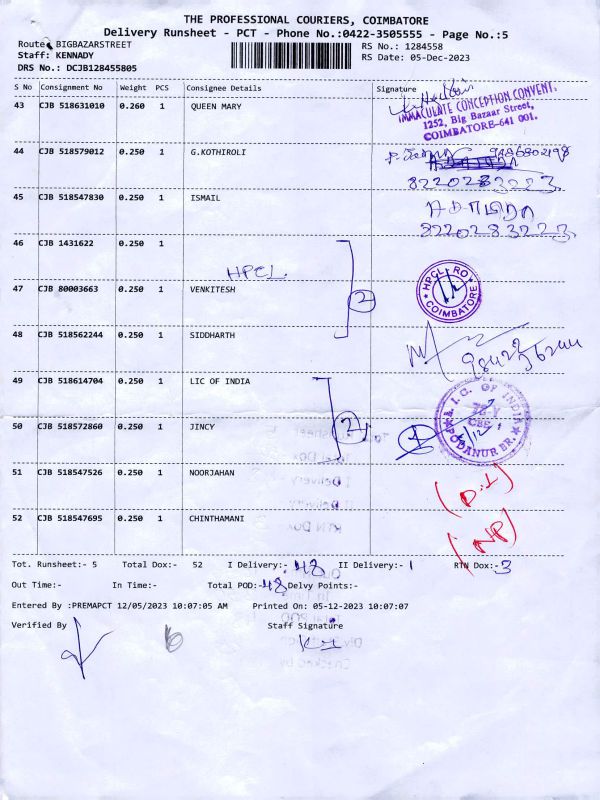 THE PROFESSIONAL COURIERS, COIMBATORE
Delivery Runsheet - PCT - Phone No.:0422-3505555 - Page No.:5
Route: BIGBAZARSTREET
Staff: KENNADY
DRS No.: DCJB128455805
RS No.: 1284558
RS Date: 05-Dec-2023
S No Consignment No Weight PCS Consignee Details Signature
43 CJB 518631010 0.260 1 QUEEN MARY
IMMACULATE CONCEPTION CONVENT.
1252, Big Bazaar Street,
COIMBATORE-641 001.
44 CJB 518579012 0.250 1 G.KOTHIROLI
8220283223
45 CJB 518547830 0.250 1 ISMAIL
8220283223
46 CJB 1431622 0.250 1
HPCL
2
47 CJB 80003663 0.250 1 VENKITESH
HPCL RO
COIMBATORE
48 CJB 518562244 0.250 1 SIDDHARTH
49 CJB 518614704 0.250 1 LIC OF INDIA
L.I.C. OF INDIA
PODANUR BR.
50 CJB 518572860 0.250 1 JINCY
2
51 CJB 518547526 0.250 1 NOORJAHAN
(D.L)
52 CJB 518547695 0.250 1 CHINTHAMANI
(NP)
Tot. Runsheet:- 5 Total Dox:- 52 I Delivery:- 48 II Delivery:- 1 RTN Dox:-3
Out Time:- In Time:- Total POD:-48 Delvy Points:-
Entered By :PREMAPCT 12/05/2023 10:07:05 AM Printed On: 05-12-2023 10:07:07
Verified By Staff Signature